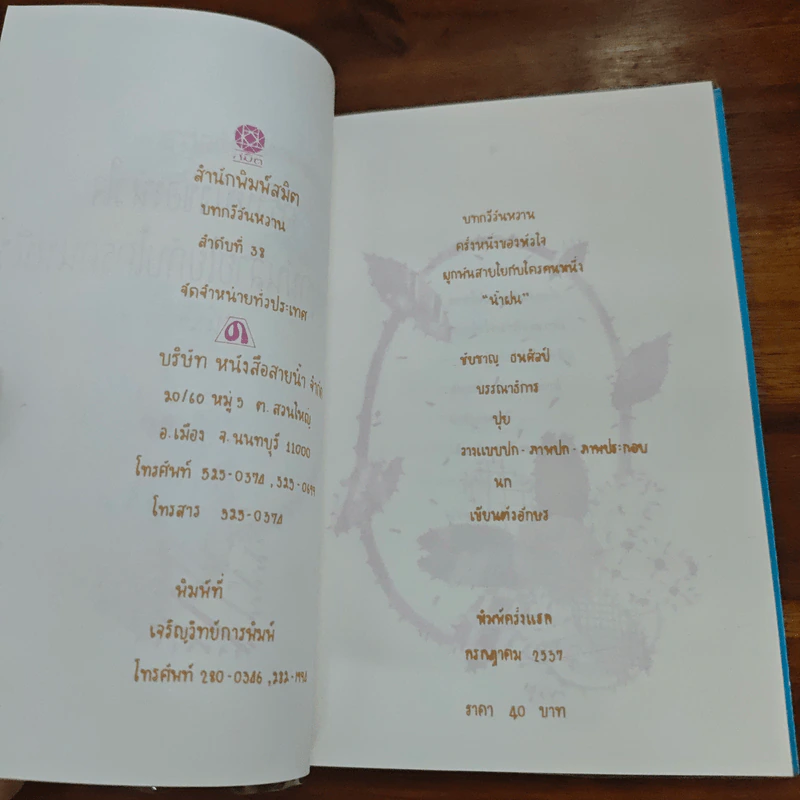 สมิต
สำนักพิมพ์สมิต
บทกรีวันหวาน
ลำดับที่ 38
จัดจำหน่ายทั่วประเทศ
บริษัท หนังสือสายน้ำ จำกัด
20/60 หมู่ 5 ต. สวนใหญ่
อ.เมือง จ.นนทบุรี 11000
โทรศัพท์ 525-0374 , 525-0699
โทรสาร 525-0374
พิมพ์ที่
เจริญวิทย์การพิมพ์
โทรศัพท์ 280-0346 , 282-
บทกรีวันหวาน
ครั้งหนึ่งของหัวใจ
ผูกพันสายใยกับใครคนหนึ่ง
"น้ำฝน"
ชัยชาญ ธนศิลป์
บรรณาธิการ
ปุ่ย
วางแบบปก - ภาพปก - ภาพประกอบ
นก
เขียนตัวอักษร
พิมพ์ครั้งแรก
กรกฎาคม 2537
ราคา 40 บาท